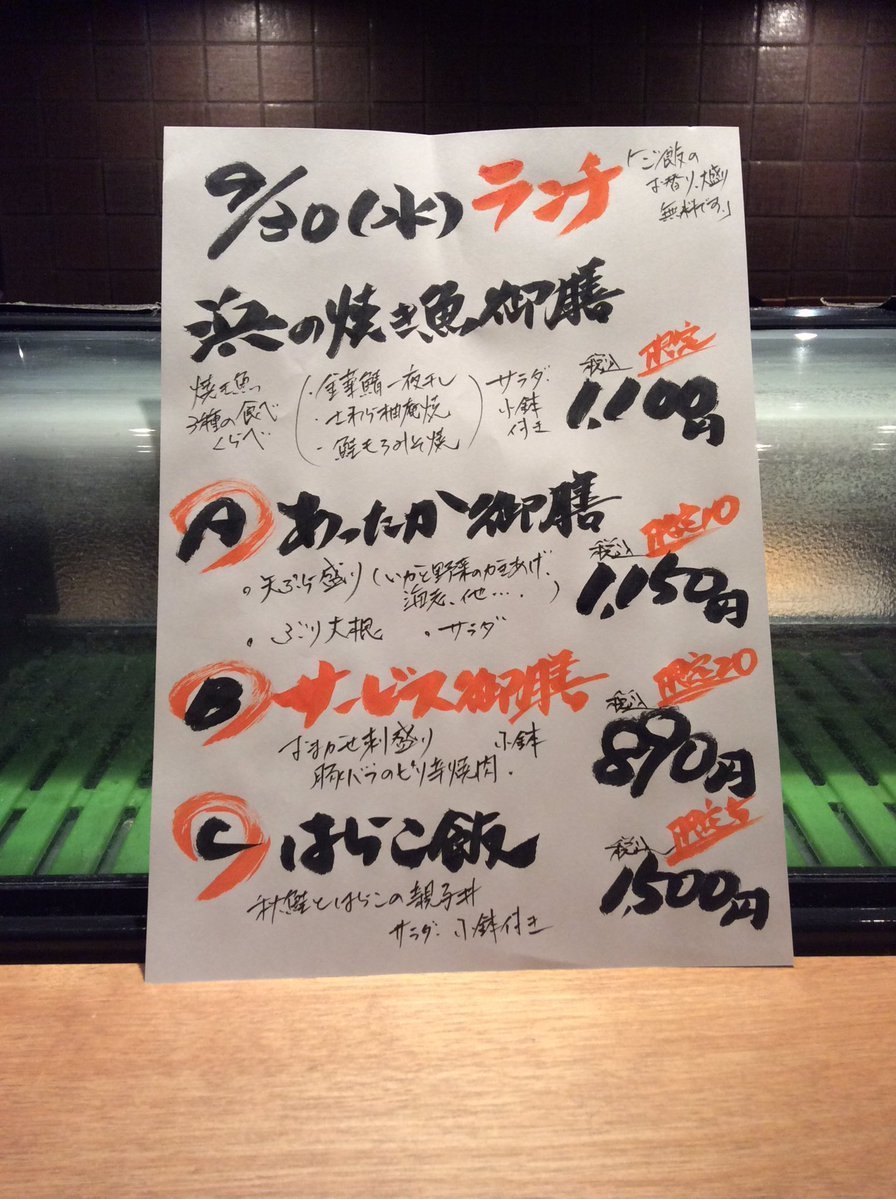 9/30(水)ランチ
「ご飯の
お替り、大盛り
無料です。」
浜の焼き魚御膳
焼き魚
3種の食べ
くらべ
・金華鯖一夜干し
・さわら柚庵焼
・鮭もろみそ焼
サラダ
小鉢
付き
税込 限定
1,100円
A あったか御膳
税込 限定10
1,150円
。天ぷら盛り(いかと野菜のかきあげ、
海老、他…。)
。ぶり大根 。サラダ
B サービス御膳
税込 限定20
890円
おまかせ刺盛り 小鉢
豚バラのピリ辛焼肉.
C はらこ飯
税込 限定5
1,500円
秋鮭とはらこの親子丼
サラダ・小鉢付き